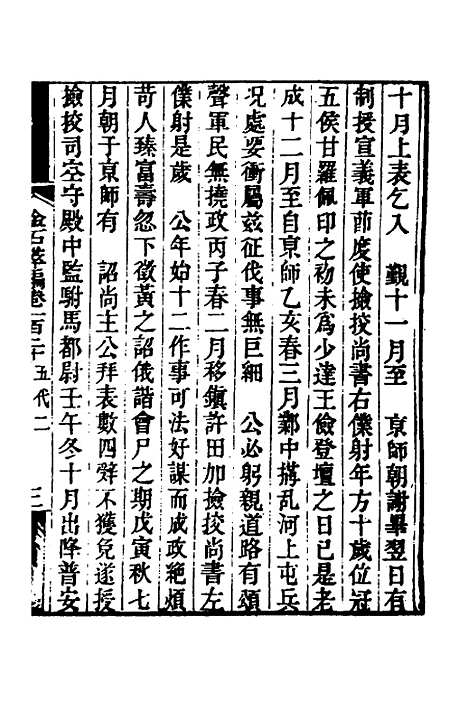 十月上表乞入　覲十一月至　京師朝謝畢翌日有
制授宣義軍節度使撿挍尚書右僕射年方十歲位冠
五侯甘羅佩印之初未爲少達王儉登壇之日已是老
成十二月至自京師乙亥春三月鄴中搆乱河上屯兵
况處要衝屬兹征伐事無巨細　公必躬親道路有頌
聲軍民無撓政丙子春二月移鎮許田加撿挍尚書左
僕射是歲　公年始十二作事可法好謀而成政絶煩
苛人臻富壽忽下徵黃之詔俄諧會尸之期戊寅秋七
月朝于京師有　詔尚主公拜表數四辤不獲免遂授
撿挍司空守殿中監駙馬都尉壬午冬十月出降普安
金石萃編卷一百二十五代二　三